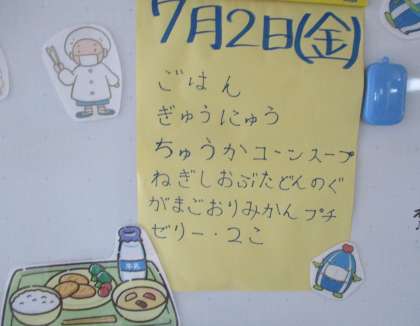 7月2日(金)
ごはん
ぎゅうにゅう
ちゅうかコーンスープ
ねぎしおぶたどんのぐ
がまごおりみかんプチ
ゼリー・2こ
牛乳